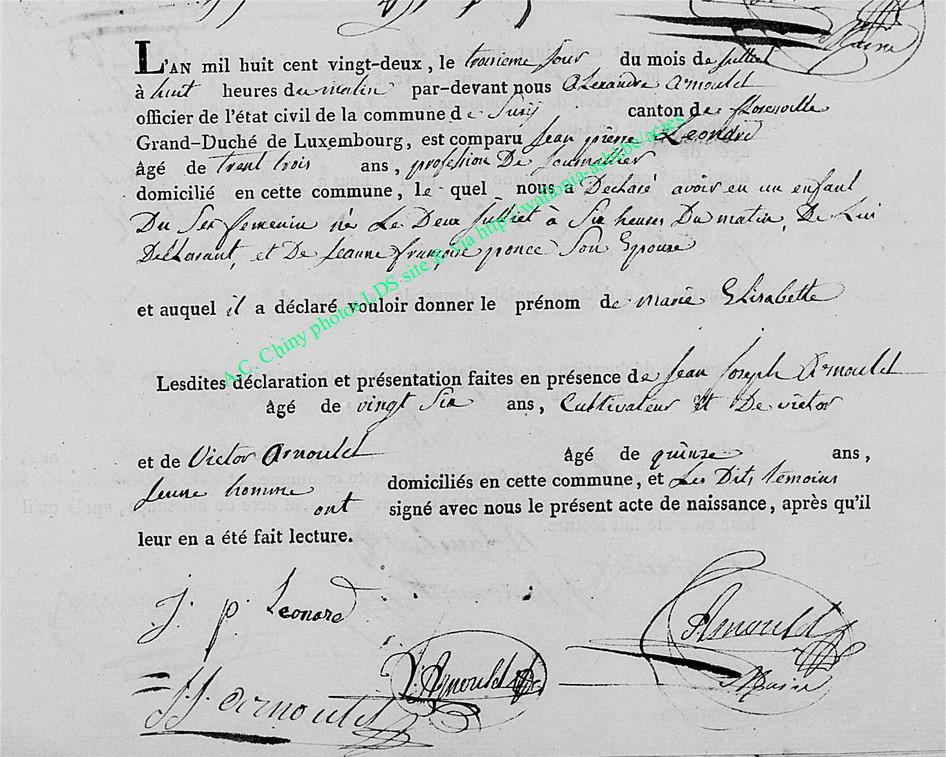 L'AN mil huit cent vingt-deux, le troisieme jour du mois de Julliet
à huit heures du matin par-devant nous Alexandre Arnoult
officier de l'état civil de la commune de canton de florenville
Grand-Duché de Luxembourg, est comparu Jean pierre Leonard
âgé de trent trois ans, profession De Journalier
domicilié en cette commune, le quel nous a Declaré avoir eu un enfant
Du Sex femenin né Le Deux Julliet à Six heures Du matin, De Lui
Déclarant, et De Jeanne françoise ponce Son Epouse
et auquel il a déclaré vouloir donner le prénom de marie Elisabette
Lesdites déclaration et présentation faites en présence de Jean Joseph Arnoult
âgé de vingt Six ans, Cultivateur Et De victor
et de Victor Arnoult âgé de quinze ans,
Jeune homme domiciliés en cette commune, et Les Dits temoins
ont signé avec nous le présent acte de naissance, après qu'il
leur en a été fait lecture.
J. p. Leonard
Arnould
V. Arnould
Maire
J. J. arnoult
A.C. Chiny photos LDS site © via http://wallonia-asbl.be/actes